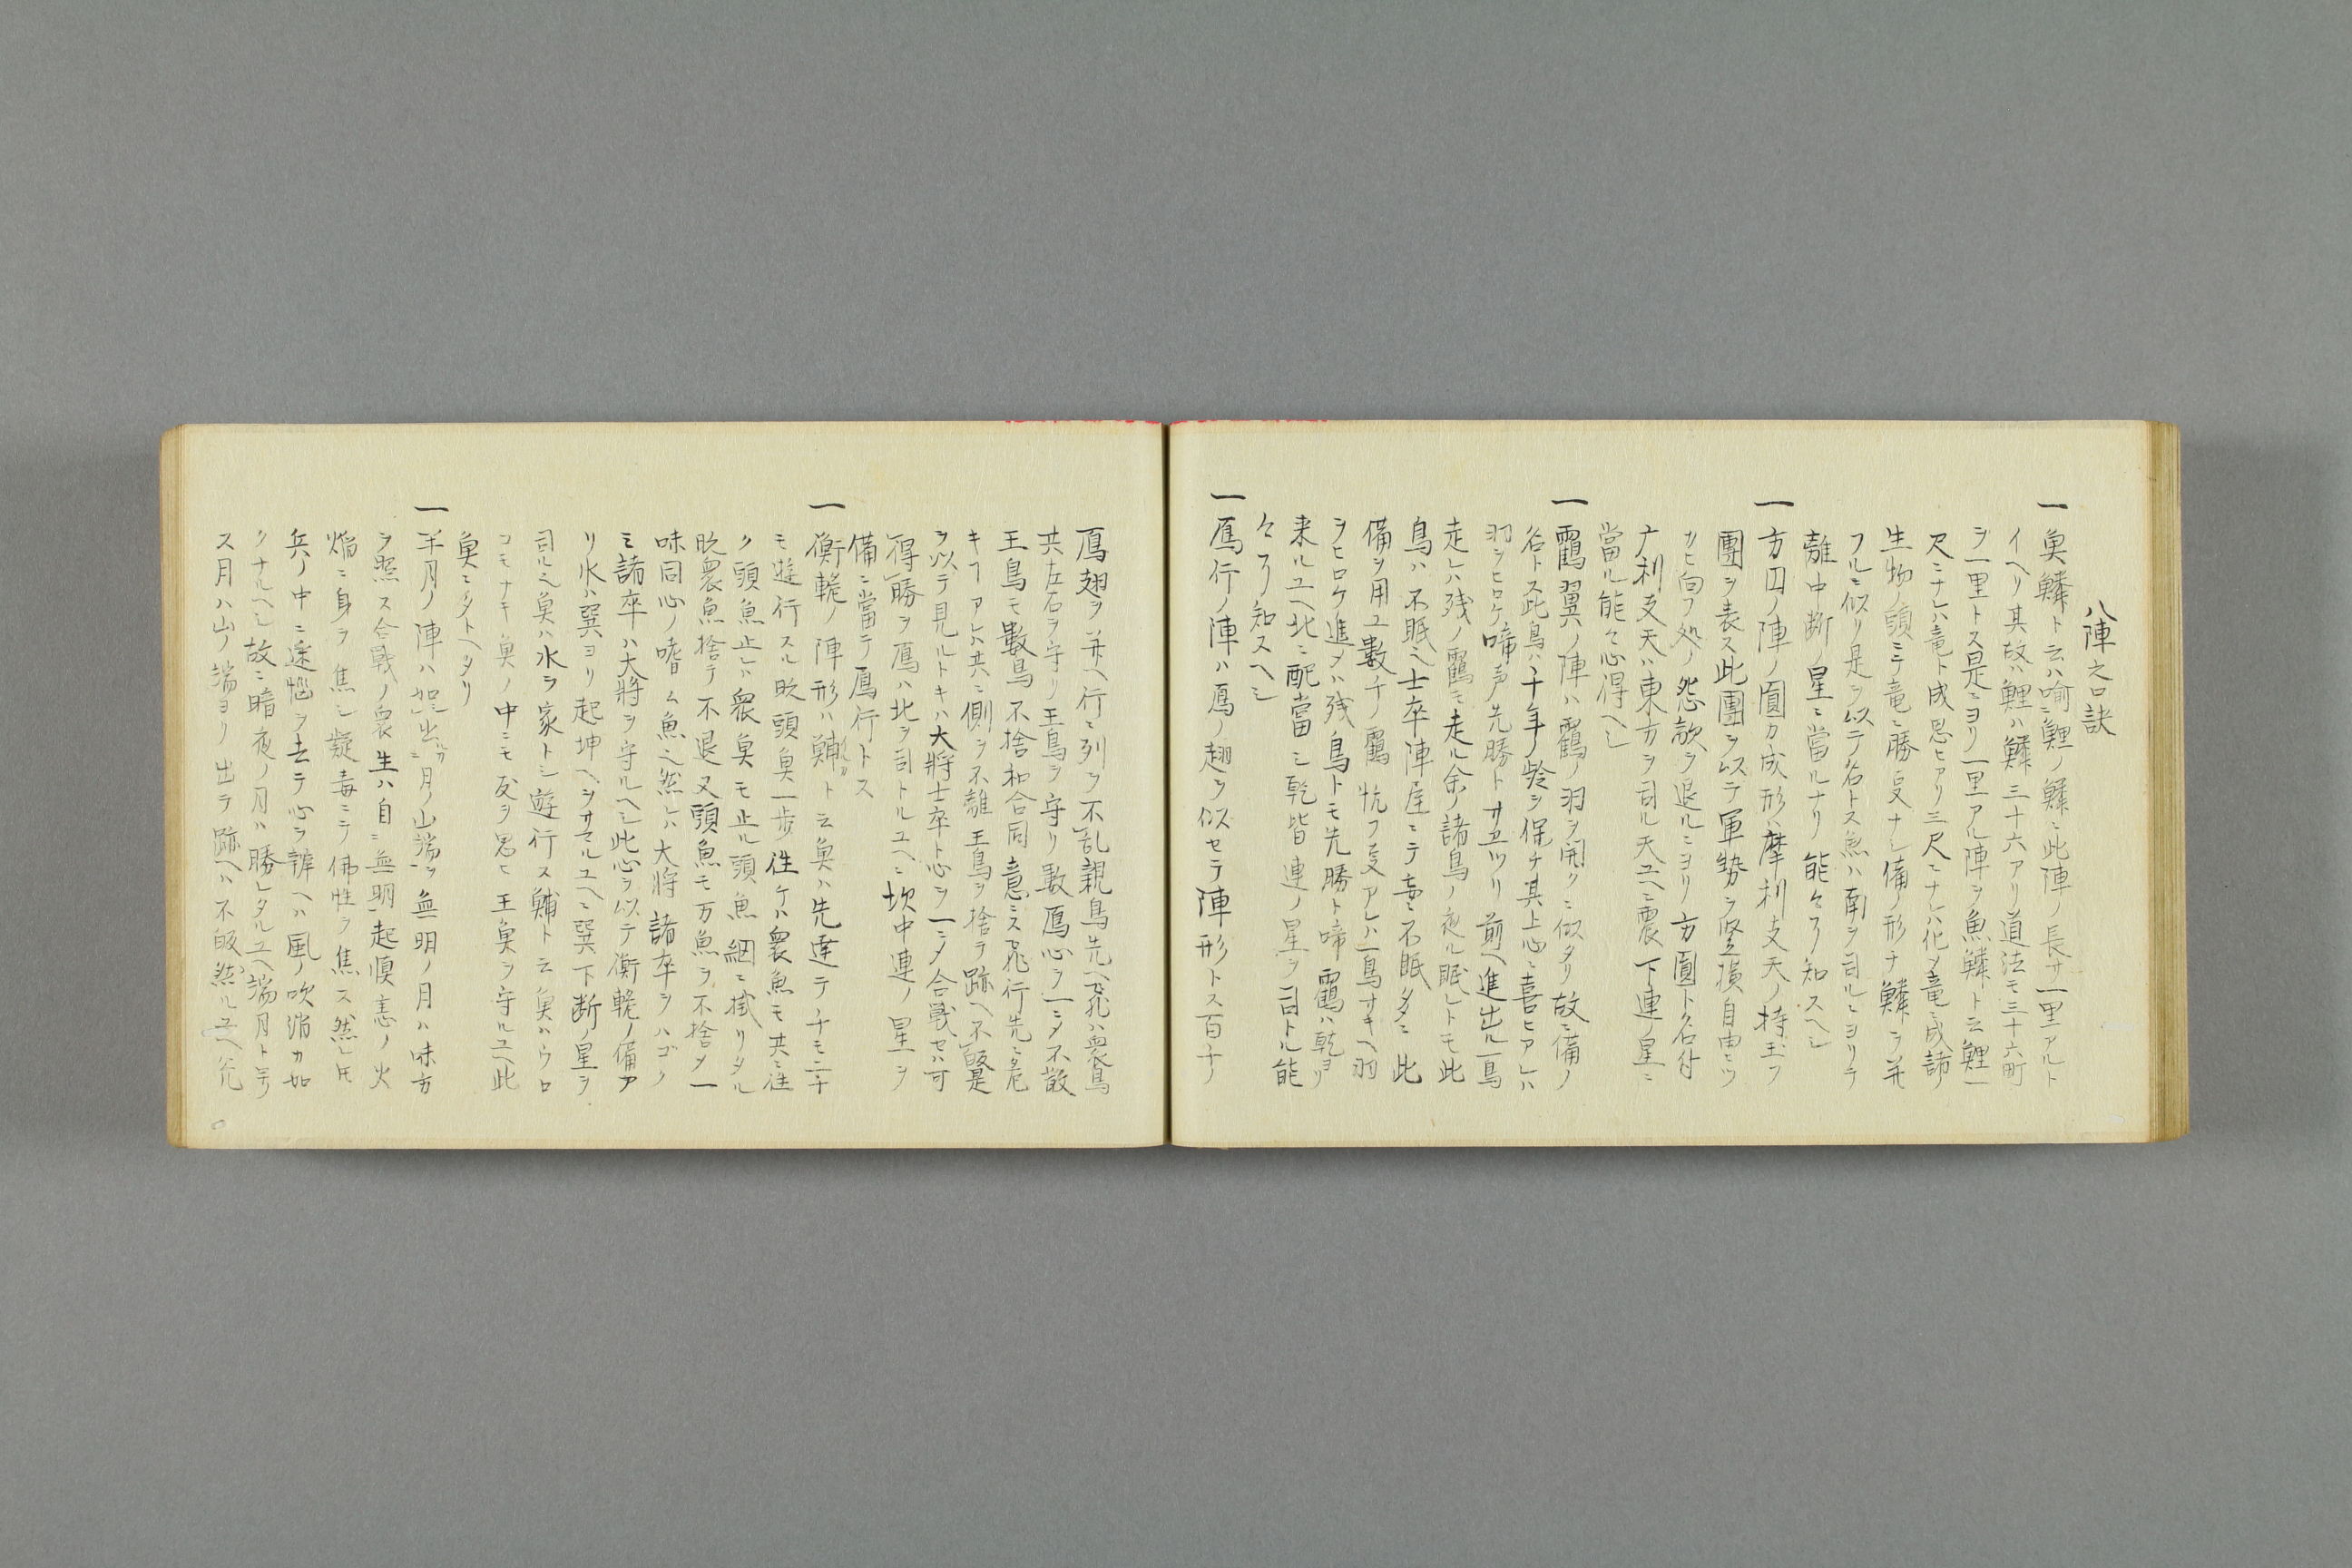 八陣之口訣
一 魚鱗ト云ハ喩ニ鯉ノ鱗ニ此陣ノ長サ一里アルト
イヘリ其故ハ鯉ハ鱗三十六アリ道法モ三十六町
ヲ一里トス是ニヨリ一里アル陣ヲ魚鱗ト云鯉一
尺ニナレハ竜ト成思ヒアリ三尺ニナレハ化メ竜ニ成諸ノ
生物ノ頭ニテ竜ニ勝叓ナシ備ノ形チ鱗ヲ並
フルニ似リ是ヲ以テ名トス魚ハ南ヲ司ルニヨリテ
離中断ノ星ニ當ルナリ能々了知スヘシ
一 方囚ノ陣ノ圓カ成形ハ摩利支天ノ持玉フ
團ヲ表ス此團ヲ以テ軍勢ヲ竪横自由ニツ
カヒ向フ処ノ怨敵ヲ退ルニヨリ方圓ト名付
广利支天ハ東方ヲ司ル天ユヘニ震下連ノ星ニ
當ル能々心得ヘシ
一 鶴翼ノ陣ハ鶴ノ羽ヲ開クニ似タリ故ニ備ノ
名トス此鳥ハ千年ノ齢ヲ保チ其上心ニ喜ヒアレハ
羽ヲヒロケ啼声先勝トサエツリ前ヘ進出ル一鳥
走レハ残ノ鶴モ走ル余ノ諸鳥ノ夜ル眠レトモ此
鳥ハ不眠之士卒陣屋ニテ妄ニ不眠タニ此
備ヲ用ユ數千ノ鶴忼フ叓アレハ一鳥サキヘ羽
ヲヒロケ進メハ残鳥トモ先勝ト啼鶴ハ乾ヨリ
来ルユヘ北ニ配當シ乾皆連ノ星ヲ司トル能
々了知スヘシ
一 鳫行ノ陣ハ鳫ノ翅ヲ似セテ陣形トス百千ノ
鳫翅ヲ並ヘ行ニ列ヲ不乱親鳥先ヘ飛ハ衆鳥
共左右ヲ守リ王鳥ヲ守リ數鳫心ヲ一ニメ不散
王鳥モ數鳥不捨和合同意ニス飛行先ニ危
キヿアレハ共ニ側ヲ不離王鳥ヲ捨テ跡ヘ不皈是
ヲ以テ見ルトキハ大將士卒ト心ヲ一ニメ合戰セハ可
得勝ヲ鳫ハ北ヲ司トルユヘニ坎中連ノ星ヲ
備ニ當テ鳫行トス
一 衡軛ノ陣形ハ鯆ト云魚ハ先達テ千モ二千
モ遊行スル時頭魚一歩往ケハ衆魚モ共ニ往
ク頭魚止レハ衆魚モ止ル頭魚網ニ掛リタル
時衆魚捨テ不退又頭魚モ万魚ヲ不捨メ一
味同心ノ嗜ム魚之然レハ大將諸卒ヲハゴク
ミ諸卒ハ大將ヲ守ルヘシ此心ヲ以テ衡軛ノ備ア
リ水ハ巽ヨリ起坤ヘヲサマルユヘニ巽下断ノ星ヲ
司ル之魚ハ水ヲ家トシ遊行ス鯆ト云魚ハウロ
コモナキ魚ノ中ニモ友ヲ思ヒ王魚ヲ守ルユヘ此
魚ニタトヘタリ
一 半月ノ陣ハ如出月ノ山端ヲ無明ノ月ハ味方
ヲ照ス合戰ノ衆生ハ自ニ無明起愼恚ノ火
焔ニ身ヲ焦シ凝毒ニテ佛性ヲ焦ス然レ𪜈
兵ノ中ニ迷悩ヲ去テ心ヲ辨ヘハ風ノ吹消カ如
クナルヘシ故ニ暗夜ノ月ハ勝レタルユヘ端月ト号
ス月ハ山ノ端ヨリ出テ跡ヘハ不皈然ルユヘ先